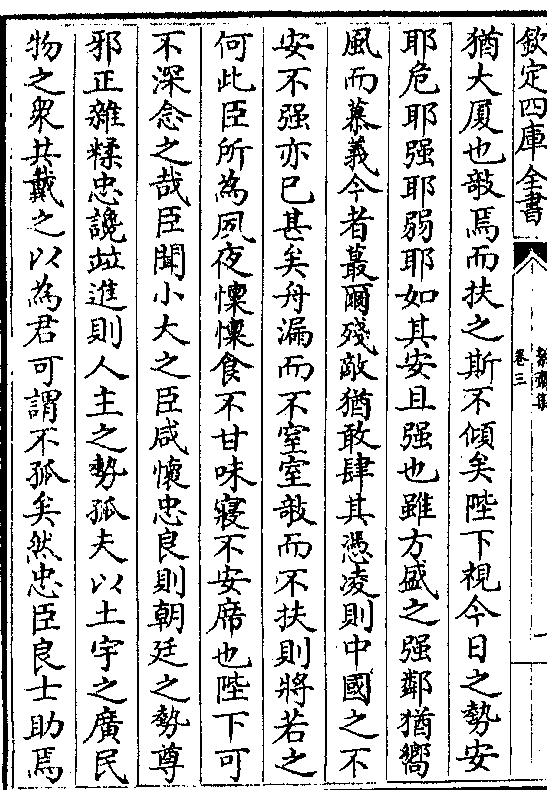 欽定四庫全書
卷三
猶大厦也敧焉而扶之斯不傾矣陛下視今日之勢安
耶危耶强耶弱耶如其安且强也雖方盛之强鄰猶嚮
風而慕義今者蕞爾殘敵猶敢肆其憑凌則中國之不
安不强亦已甚矣舟漏而不窒室敧而不扶則將若之
何此臣所為夙夜懍懍食不甘味寢不安席也陛下可
不深念之哉臣聞小大之臣咸懷忠良則朝廷之勢尊
邪正雜糅忠讒竝進則人主之勢孤夫以土宇之廣民
物之衆共戴之以為君可謂不孤矣然忠臣良士助焉